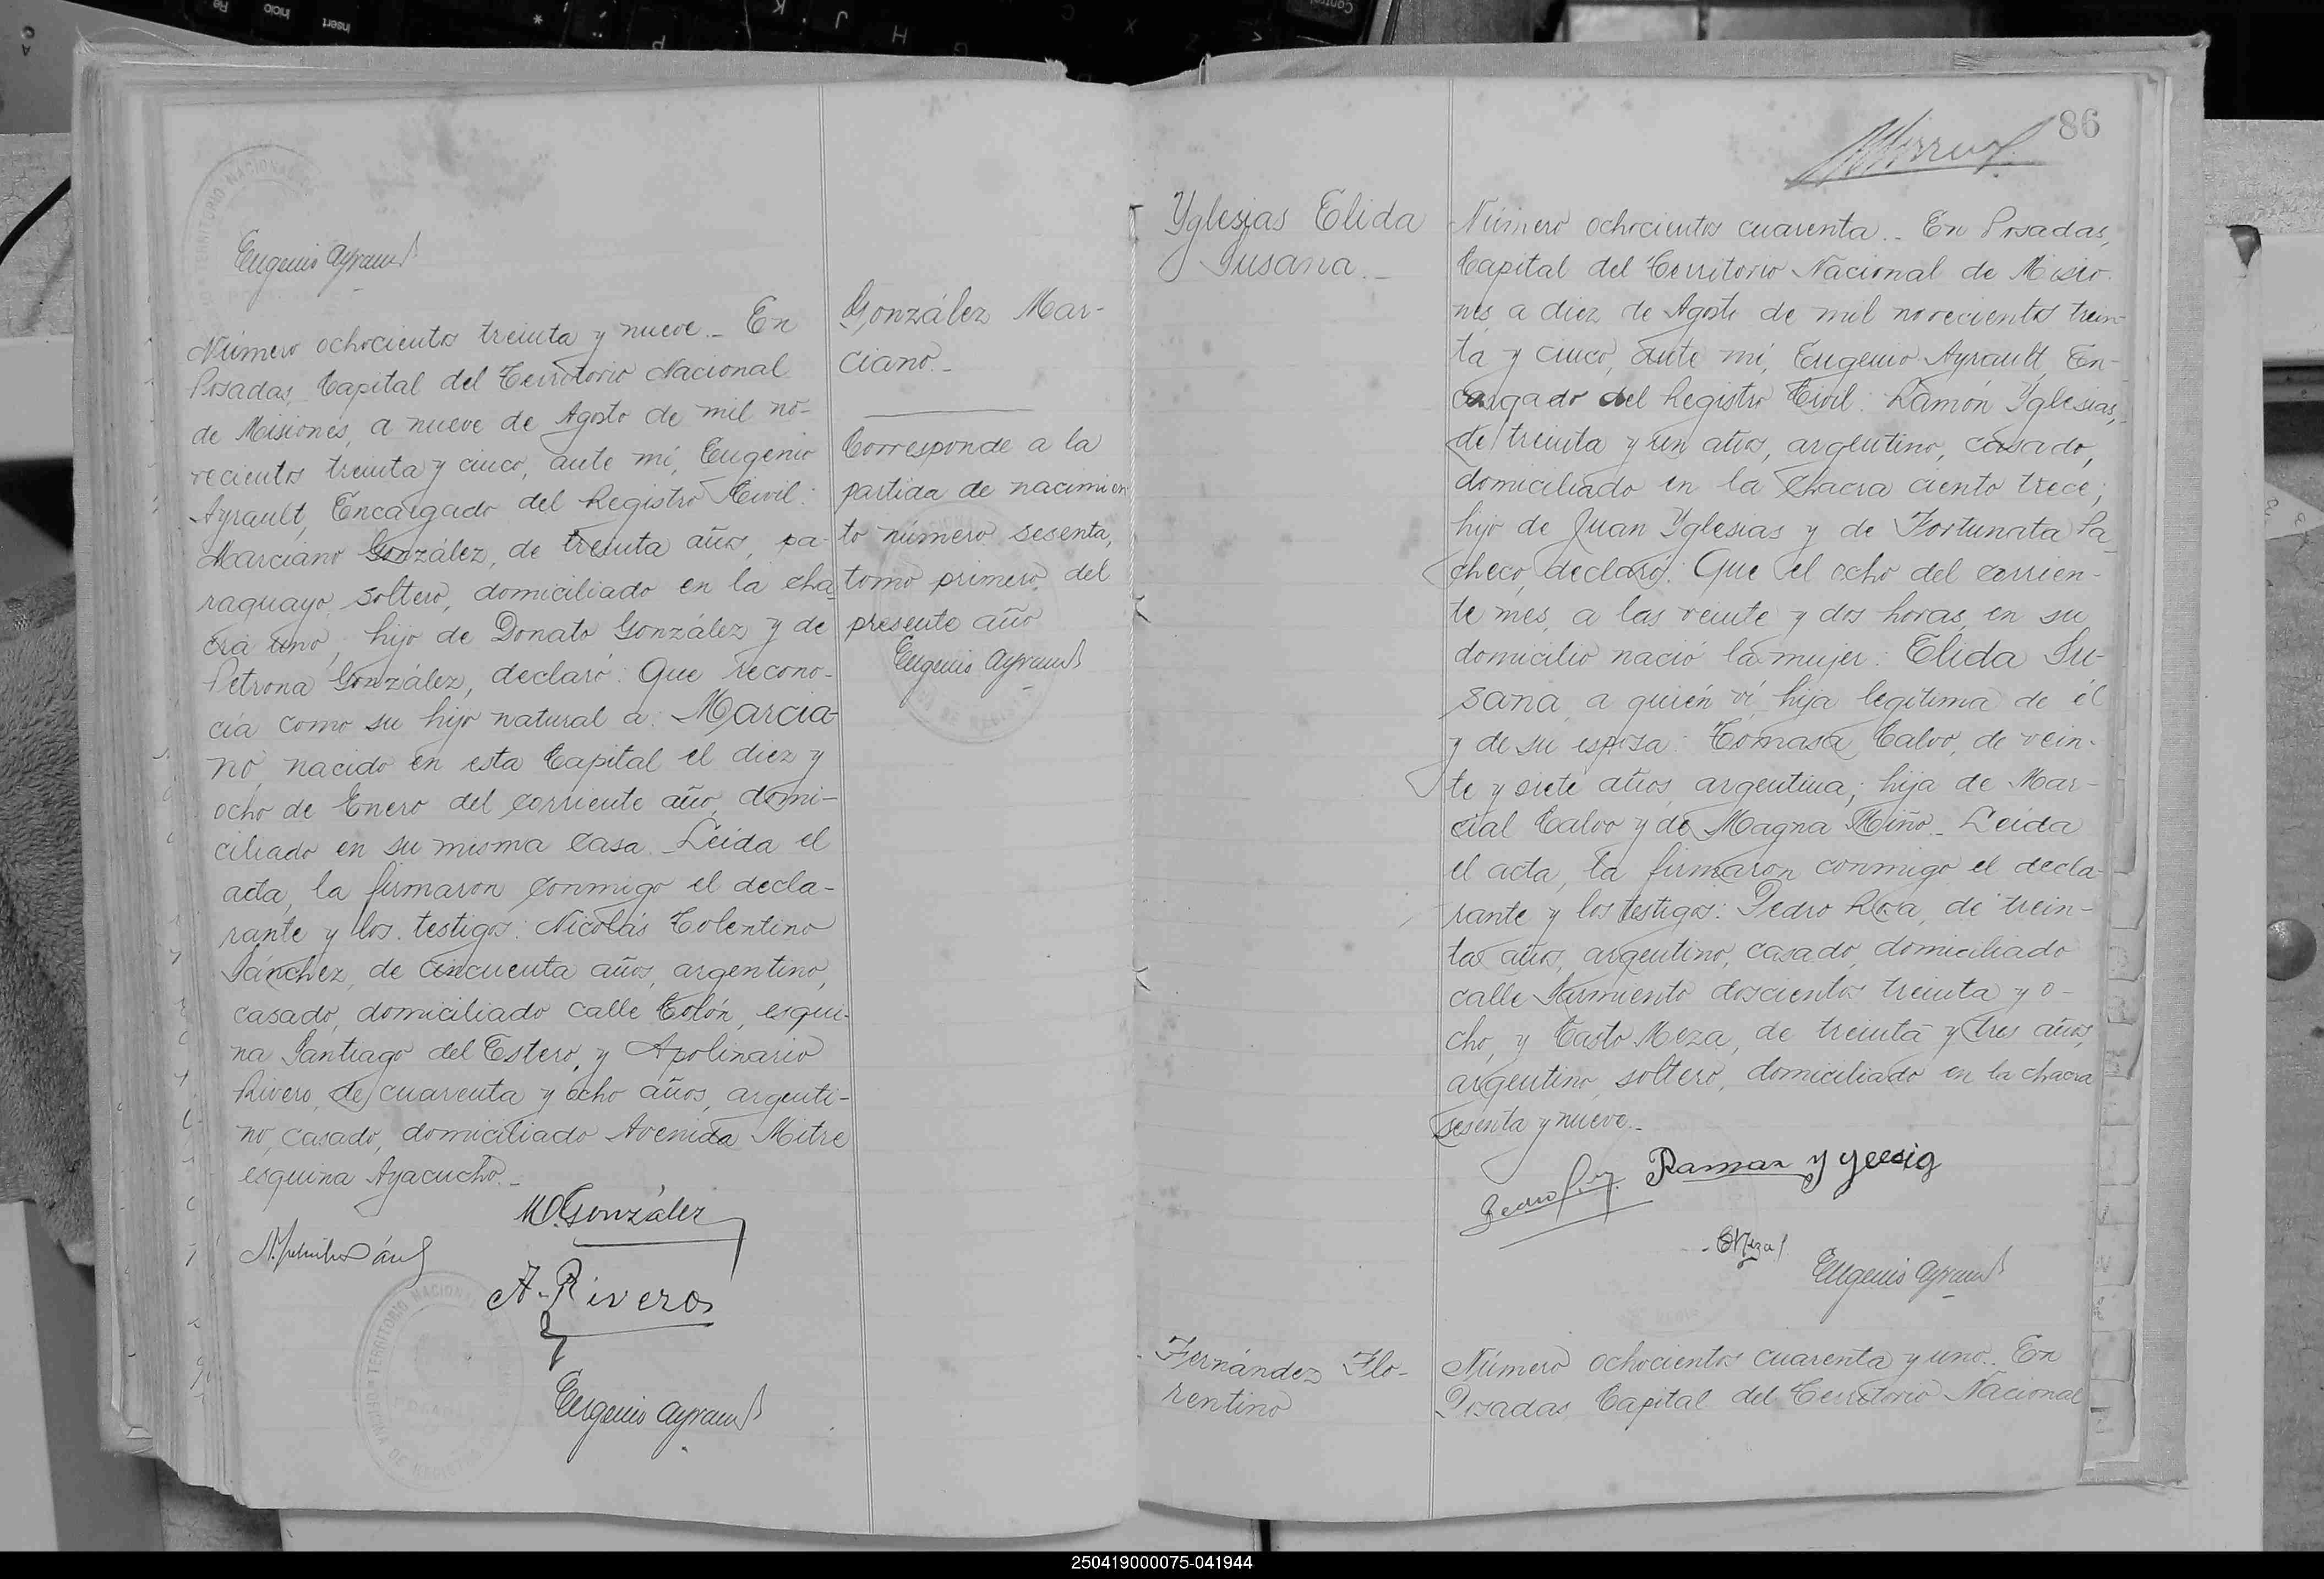 Eugenio Ayrault
Número ochocientos treinta y nueve.- En
Posadas, Capital del Territorio Nacional
de Misiones, a nueve de Agosto de mil no-
vecientos treinta y cinco, ante mí, Eugenio
Ayrault, Encargado del Registro Civil:
Marciano González, de treinta años, pa-
raguayo, soltero, domiciliado en la cha-
cra uno, hijo de Donato González y de
Petrona González, declaró: Que recono-
cía como su hijo natural a: Marcia-
no nacido en esta Capital el diez y
ocho de Enero del corriente año, domi-
ciliado en su misma casa. Leída el
acta, la firmaron conmigo el decla-
rante y los testigos: Nicolás Tolentino
Sánchez, de cincuenta años, argentino,
casado, domiciliado calle Colón, esqui-
na Santiago del Estero, y Apolinario
Rivero, de cuarenta y ocho años, argenti-
no, casado, domiciliado Avenida Mitre
esquina Ayacucho.-
M. González
A. Rivero
Eugenio Ayrault
TERRITORIO NACIONAL
OFICINA DE REGISTRO
González Mar-
ciano.-
Corresponde a la
partida de nacimien
to número sesenta,
tomo primero, del
presente año
Eugenio Ayrault
86
Yglesias Elida
Susana.-
Número ochocientos cuarenta.- En Posadas,
Capital del Territorio Nacional de Misio-
nes, a diez de Agosto de mil novecientos trein-
ta y cinco, ante mí, Eugenio Ayrault, En-
cargado del Registro Civil: Ramón Yglesias,
de treinta y un años, argentino, casado,
domiciliado en la chacra ciento trece;
hijo de Juan Yglesias y de Fortunata Pa-
checo, declaró: Que el ocho del corrien-
te mes, a las veinte y dos horas, en su
domicilio nació la mujer: Elida Su-
sana, a quién ví, hija legítima de él
y de su esposa: Tomasa Calvo, de vein-
te y siete años, argentina; hija de Mar-
cial Calvo y de Magna Miño.- Leída
el acta, la firmaron conmigo el decla-
rante y los testigos: Pedro Roa, de trein-
ta años, argentino, casado, domiciliado
calle Sarmiento doscientos treinta y o-
cho, y Casto Meza, de treinta y tres años,
argentino, soltero, domiciliado en la chacra
sesenta y nueve.-
Ramon Y
C Meza
Eugenio Ayrault
Fernández Flo-
rentino
Número ochocientos cuarenta y uno.- En
Posadas, Capital del Territorio Nacional
250419000075-041944